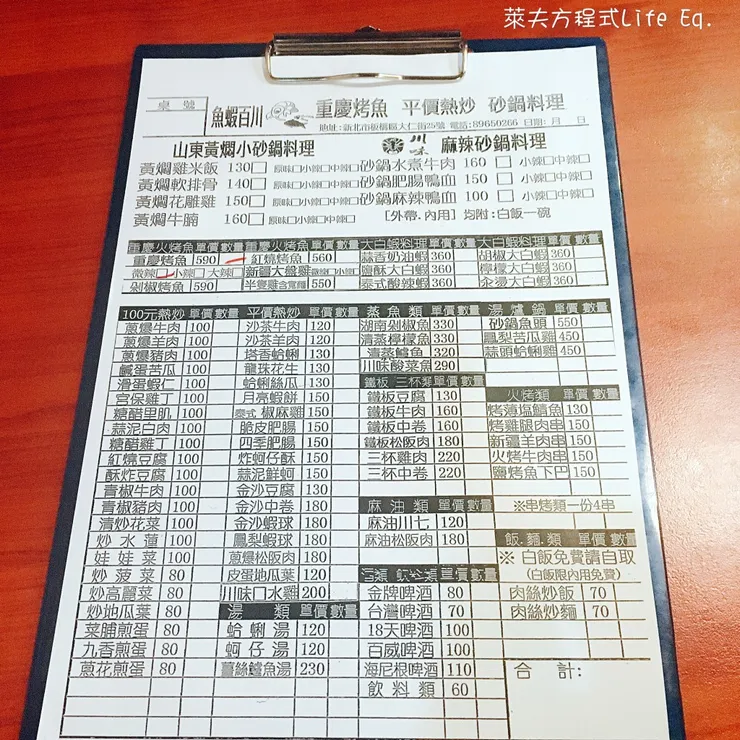 萊夫方程式Life Eq.
桌號
魚蝦百川 重慶烤魚 平價熱炒 砂鍋料理
地址:新北市板橋區大仁街25號 電話:89650266 日期: 月 日
山東黃燜小砂鍋料理 川味 麻辣砂鍋料理
黃燜雞米飯 130□ 原味□小辣□中辣□ 砂鍋水煮牛肉 160 □ 小辣□中辣□
黃燜軟排骨 140□ 原味□小辣□中辣□ 砂鍋肥腸鴨血 150 □ 小辣□中辣□
黃燜花雕雞 150□ 原味□小辣□中辣□ 砂鍋麻辣鴨血 100 □ 小辣□中辣□
黃燜牛腩 160□ 原味□小辣□中辣□ [外帶.內用] 均附:白飯一碗
重慶火烤魚 單價 數量 重慶火烤魚 單價 數量 大白蝦料理 單價 數量 大白蝦料理 單價 數量
重慶烤魚 590 紅燒烤魚 560 蒜香奶油蝦 360 胡椒大白蝦 360
微辣□小辣□大辣□ 新疆大盤雞 微辣□小辣□ 鹽酥大白蝦 360 檸檬大白蝦 360
剁椒烤魚 590 半隻雞含寬麵 550 泰式酸辣蝦 360 汆燙大白蝦 360
100元熱炒 單價 數量 平價熱炒 單價 數量 蒸魚類 單價 數量 湯爐鍋 單價 數量
蔥爆牛肉 100 沙茶牛肉 120 湖南剁椒魚 330 砂鍋魚頭 550
蔥爆羊肉 100 沙茶羊肉 120 清蒸檸檬魚 330 鳳梨苦瓜雞 450
蔥爆豬肉 100 塔香蛤蜊 130 清蒸鱸魚 320 蒜頭蛤蜊雞 450
鹹蛋苦瓜 100 龍珠花生 130 川味酸菜魚 290
滑蛋蝦仁 100 蛤蜊絲瓜 130 鐵板 三杯類 單價 數量
宮保雞丁 100 月亮蝦餅 150 鐵板豆腐 130 火烤類 單價 數量
糖醋里肌 100 泰式 椒麻雞 150 鐵板牛肉 160 烤薄塩鯖魚 130
蒜泥白肉 100 脆皮肥腸 150 鐵板中卷 160 烤雞腿肉串 150
糖醋雞丁 100 四季肥腸 150 鐵板松阪肉 180 新疆羊肉串 150
紅燒豆腐 100 炸蚵仔酥 150 三杯雞肉 220 火烤牛肉串 150
酥炸豆腐 100 蒜泥鮮蚵 150 三杯中卷 220 鹽烤魚下巴 150
青椒牛肉 100 金沙豆腐 130
青椒豬肉 100 金沙中卷 180 麻油類 單價 數量 ※串烤類一份4串
清炒花菜 100 金沙蝦球 180 麻油川七 120 飯.麵類 單價 數量
炒水蓮 100 鳳梨蝦球 180 麻油松阪肉 180 ※ 白飯免費請自取
娃娃菜 100 蔥爆松阪肉 180 (白飯限內用免費)
炒菠菜 80 皮蛋地瓜葉 150 酒類 飲料類 單價 數量 肉絲炒飯 70
炒高麗菜 80 川味口水雞 200 金牌啤酒 80 肉絲炒麵 70
炒地瓜葉 80 湯類 單價 數量 台灣啤酒 70
菜脯煎蛋 80 蛤蜊湯 120 18天啤酒 100
九香煎蛋 80 蚵仔湯 120 百威啤酒 100 合計:
蔥花煎蛋 80 薑絲鱸魚湯 230 海尼根啤酒 110
飲料類 60